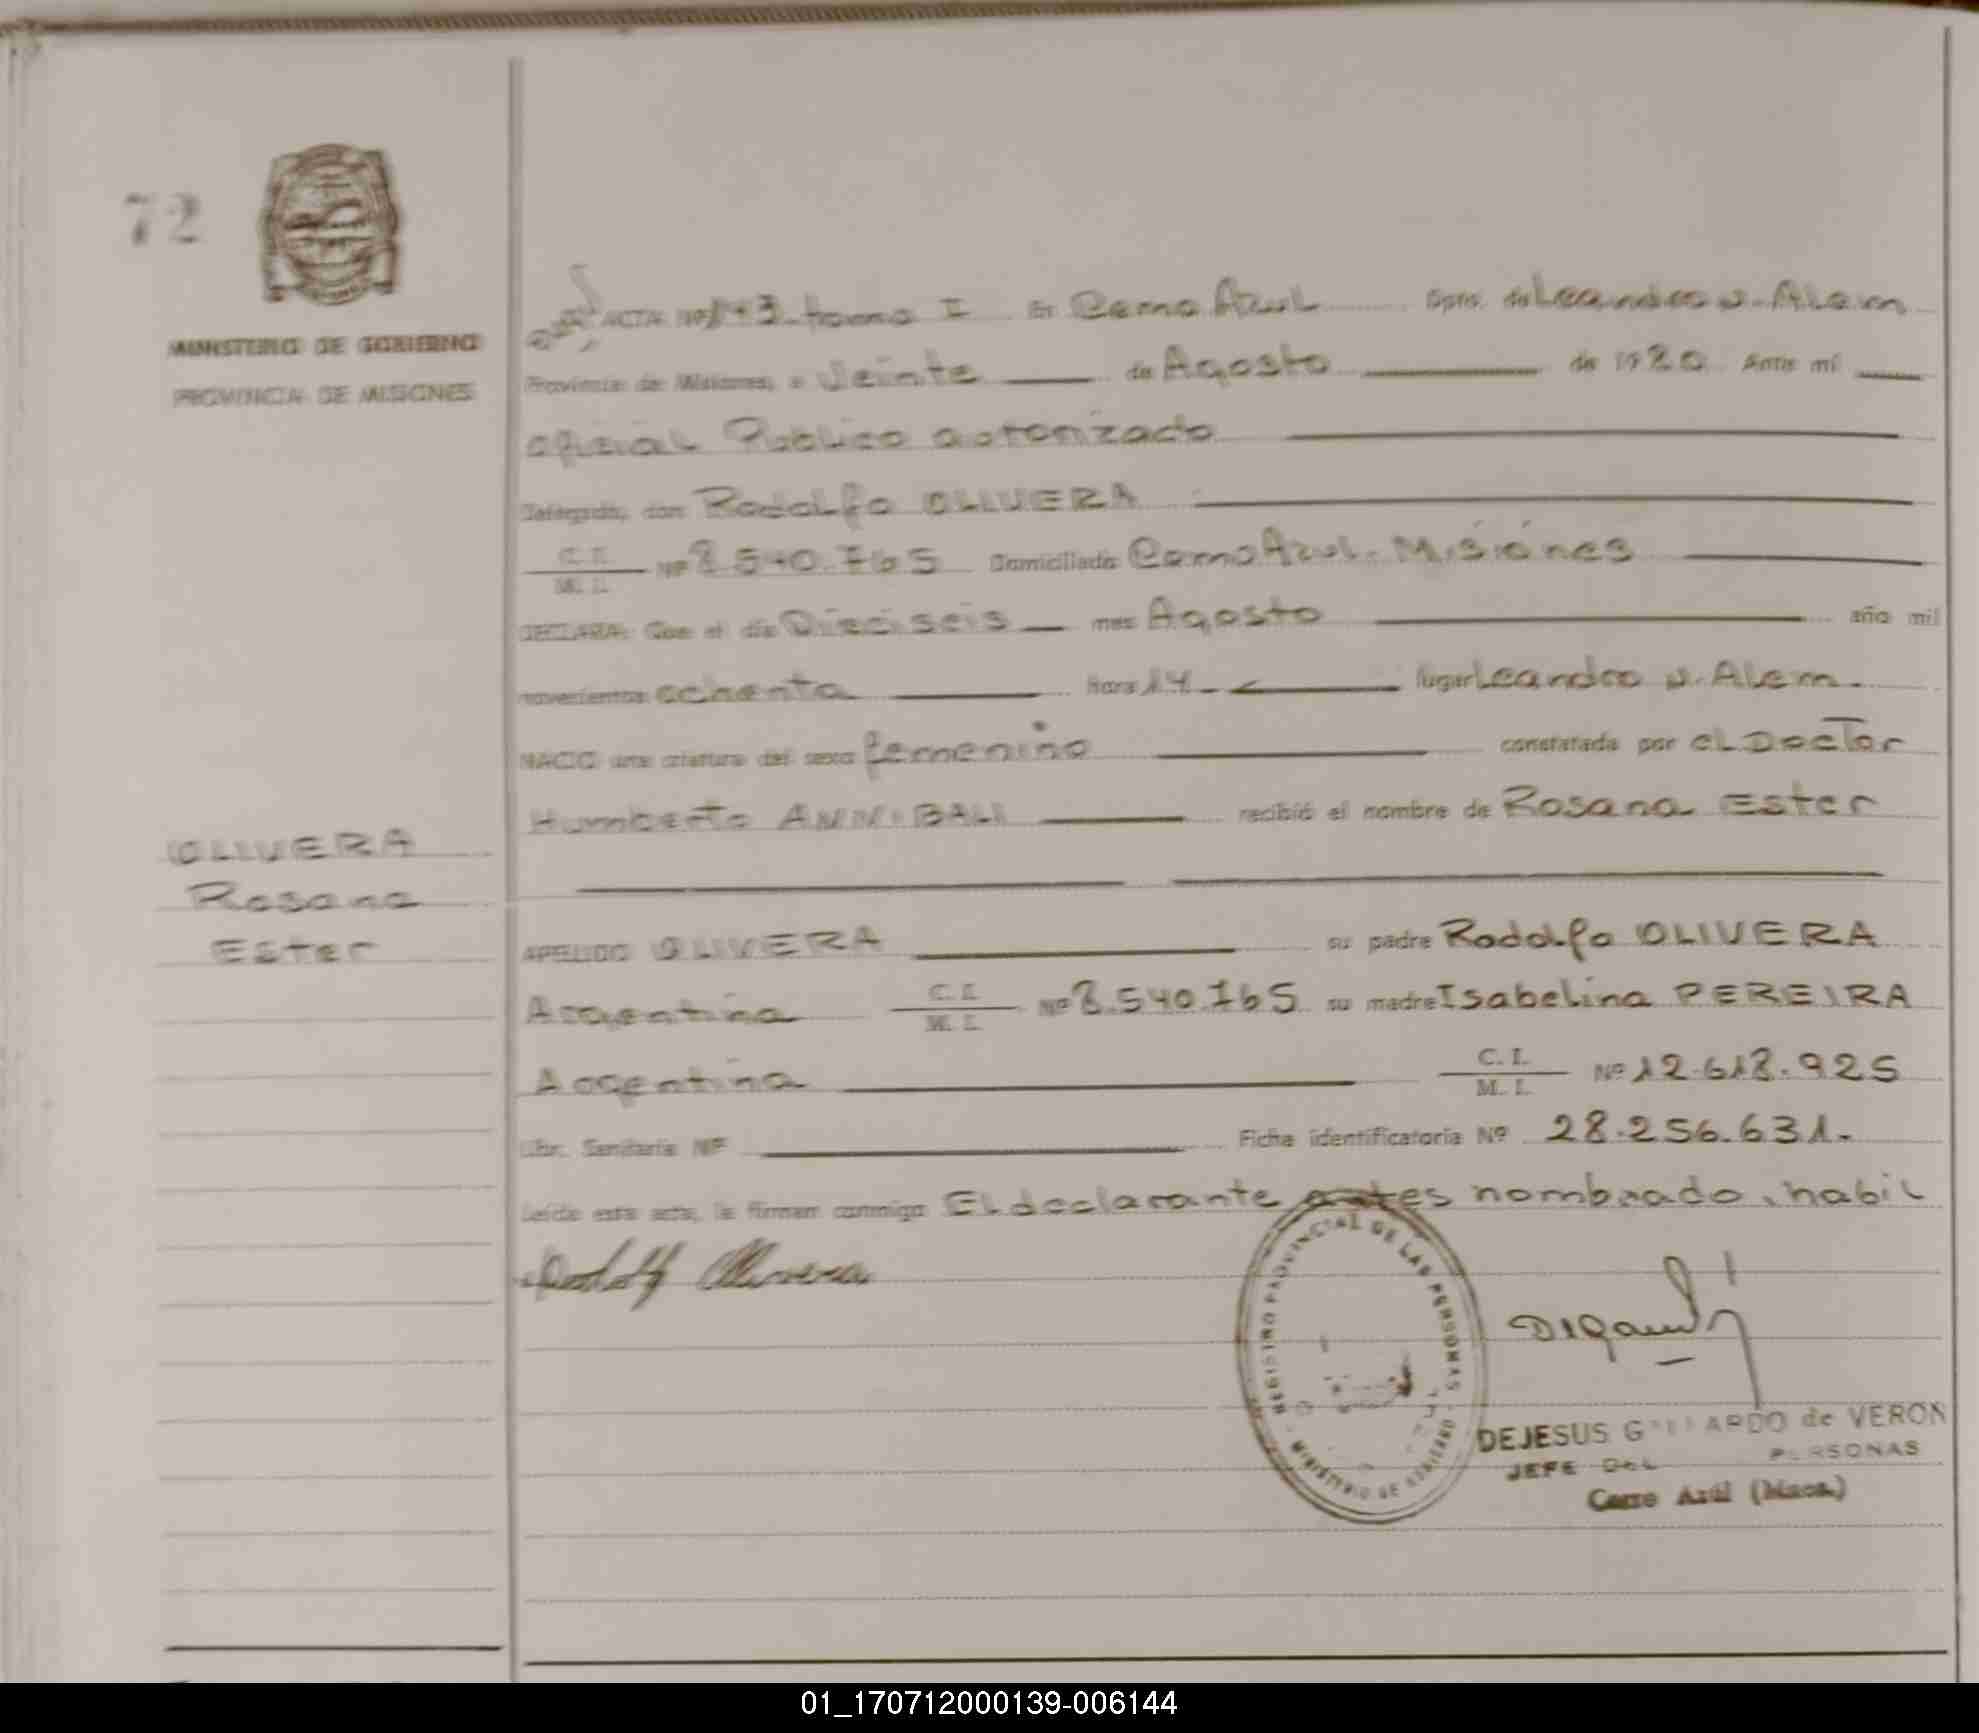 72
MINISTERIO DE GOBIERNO
PROVINCIA DE MISIONES
ACTA Nº 143 tomo I En Cerro Azul Dpto. de Leandro N. Alem
Provincia de Misiones, a Veinte de Agosto de 1980 Ante mí
oficial Publico autorizado
Delegado, don Rodolfo OLIVERA
C. I.
M. I. Nº 8.540.765 Domiciliado Cerro Azul. Misiónes
DECLARA: Que el día Dieciseis mes Agosto año mil
novecientos ochenta Hora 14 lugar Leandro N. Alem.
NACIO una criatura del sexo femenino constatada por el Doctor
Humberto ANNIBALI recibió el nombre de Rosana Ester
OLIVERA
Rosana
Ester
APELLIDO OLIVERA su padre Rodolfo OLIVERA
Argentina C. I.
M. I. Nº 8.540.765 su madre Isabelina PEREIRA
Argentina C. I.
M. I. Nº 12.618.925
Libr. Sanitaria Nº Ficha identificatoria Nº 28.256.631.-
Leída esta acta, la firman conmigo El declarante antes nombrado, habil
Rodolfo Olivera
REGISTRO PROVINCIAL DE LAS PERSONAS
MINISTERIO DE GOBIERNO
DEJESUS GALLARDO de VERON
JEFE DEL PERSONAS
Cerro Azúl (Mnes.)
01_170712000139-006144